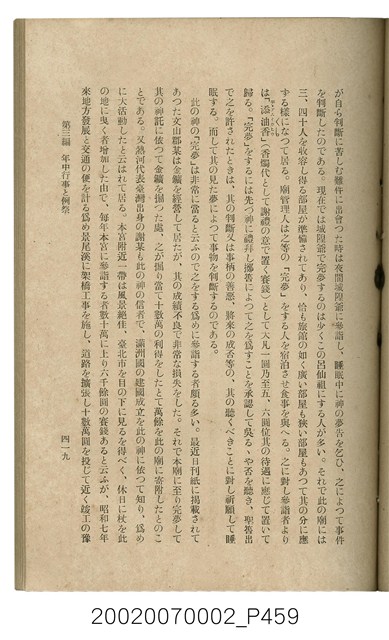 が自ら判斷に苦しむ難件に出會つた時は夜間城隍爺に參詣し、睡眠中に神の夢告を乞ひ、之によつて事件
を判斷したのである。現在では城隍爺で完夢するのは少くこの呂仙祖にする人が多い。それで此の廟には
三、四十人を收容し得る部屋が準備されてあり、恰も旅館の如く廣い部屋も狹い部屋もあつて其の分に應
する樣になつて居る。廟管理人は之等の「完夢」をする人を宿泊させ食事を與へる。之に對し參詣者より
は「添油香」（香燭代として謝禮の意で置く賽錢）として大凡一圓乃至五、六圓位其の待遇に應じて置いて
歸る。「完夢」をするには先づ神に禮拜し擲筶によつて之を爲すことを承認して吳るゝや否を聽き、聖筶出
で之を許されたときは、其の判斷又は事柄の善惡、將來の成否等の、其の聽くべきことに對し祈願して睡
眠する。而して其の見た夢によつて事物を判斷するのである。
此の神の「完夢」は非常に當ると云ふので之をする爲めに參詣する者頗る多い。最近日刊紙に揭載されて
あつた文山郡某は金鑛を經營して居たが、其の成績不良で非常な損失をした。それで本廟に至り完夢して
其の神託に依つて金鑛を掘つた處、之が掘り當て十數萬の利得をしたとて萬餘を此の廟に寄附したとのこ
とである。又熱河代表臺灣出身の謝某も此の神の信者で、滿洲國の建國成立を此の神に依つて知り、爲め
に大活動したと云はれて居る。本宮附近一帶は風景絕佳、臺北市を目の下に見るを得べく、休日に杖を此
の地に曳く者增加した由で、每年本宮に參詣する者數十萬に上り六千餘圓の賽錢あると云ふが、昭和七年
來地方發展と交通の便を計る爲め景尾溪に架橋工事を施し、道路を擴張し十數萬圓を投じて近く竣工の豫
第三編　年中行事と例祭
四一九
20020070002_P459